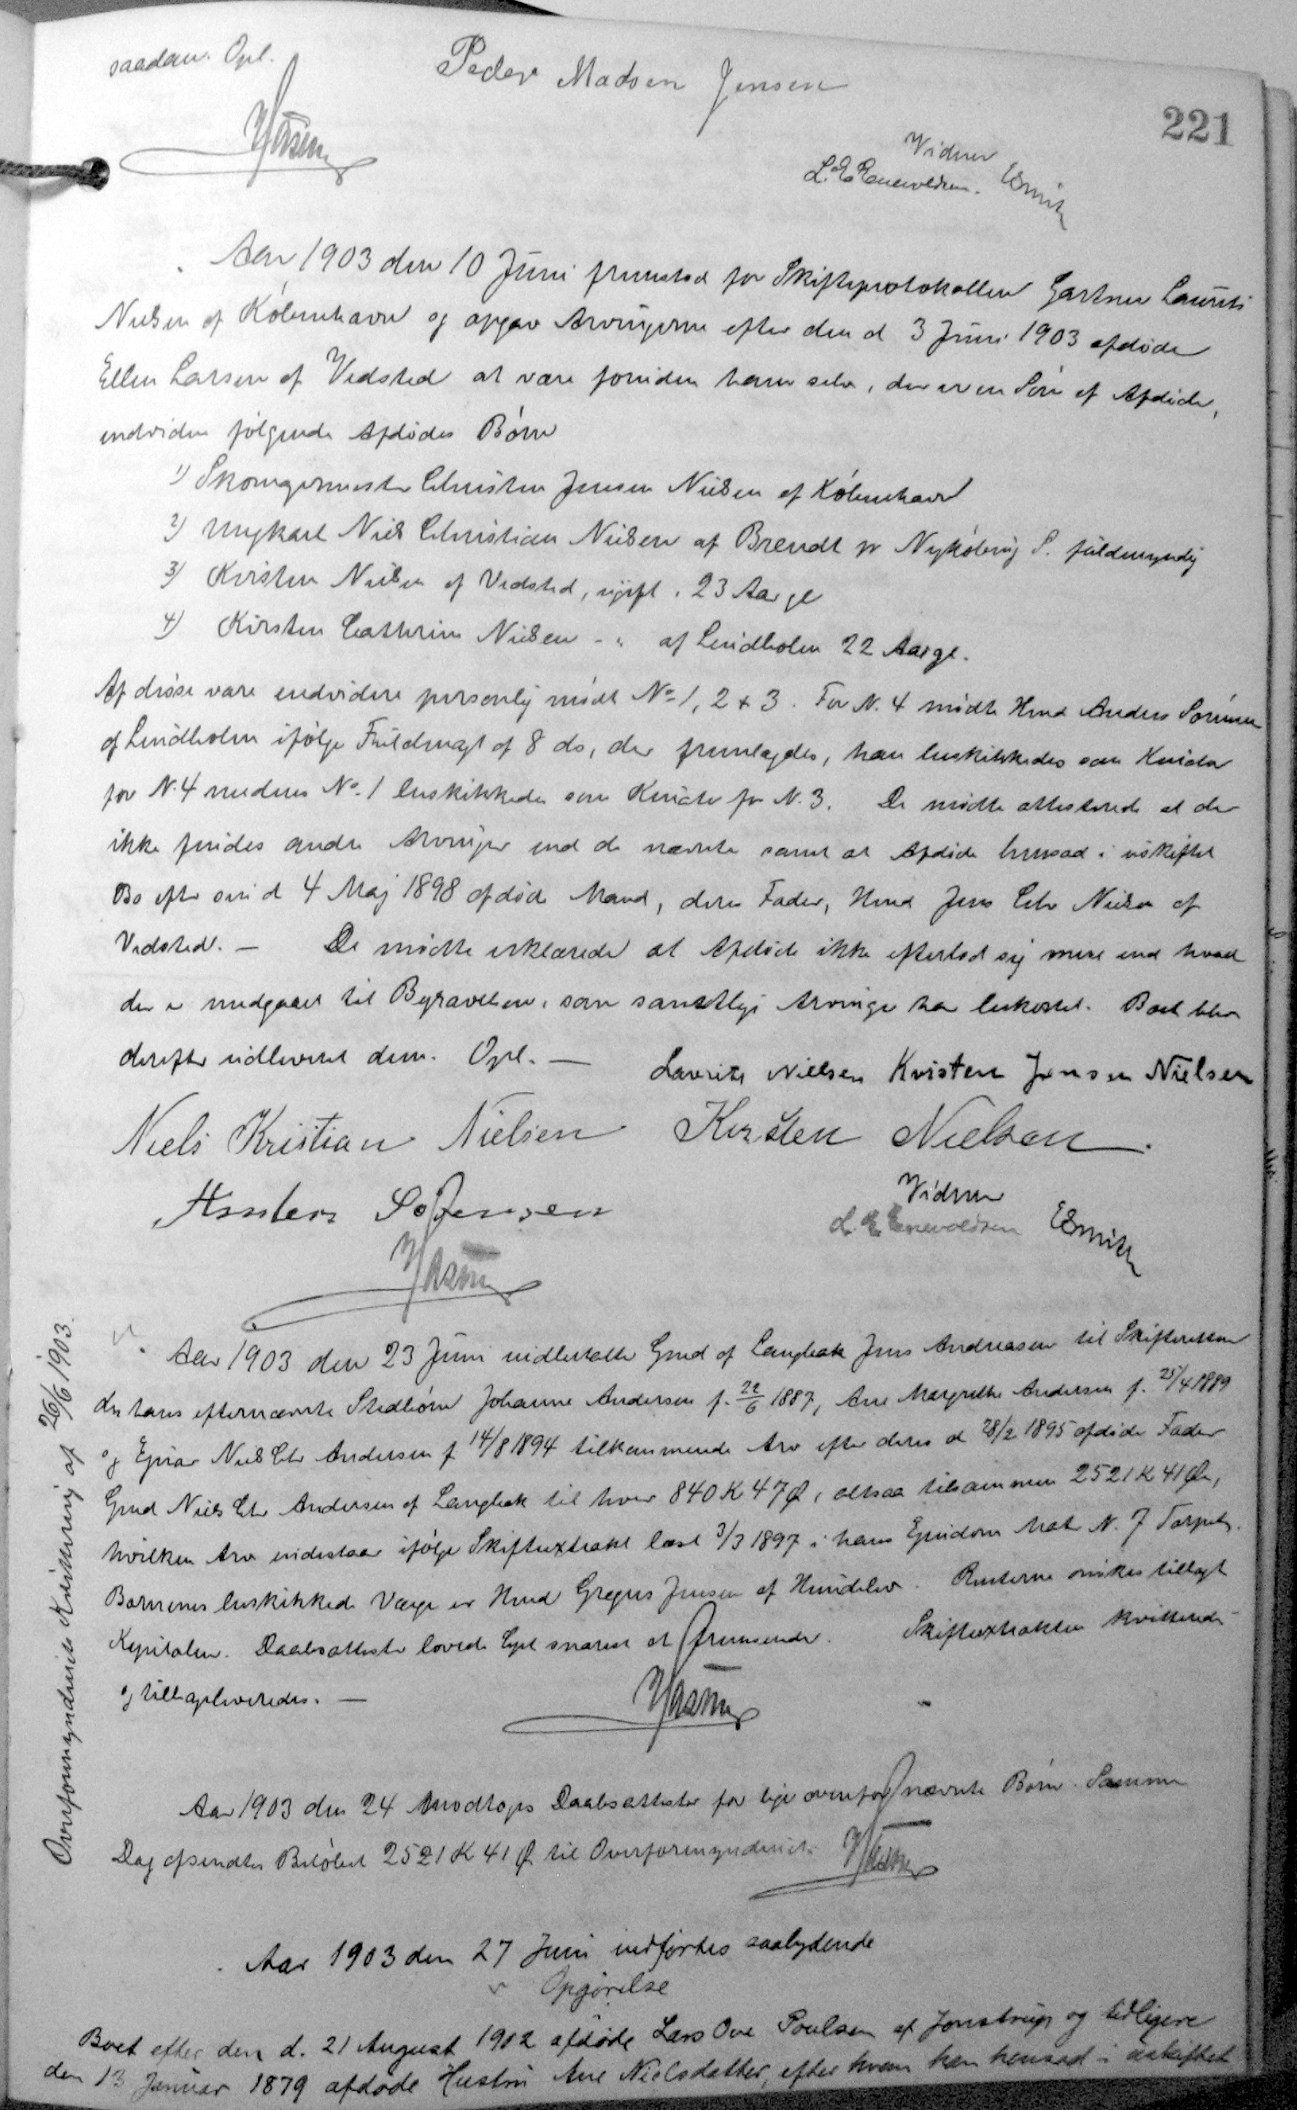 saadan. Opl.
Peder Madsen Jensen
221
Vidner
L. E. Enevoldsen. ESmith
Aar 1903 den 10 Juni fremstod for Skifteprotokollen Gartner Laurits
Nielsen af København og opgav Arvingerne efter den d 3 Juni 1903 afdøde
Ellen Larsen af Vedsted at være foruden ham selv, der er en Søn af Afdøde,
endvidere følgende Afdødes Børn
1) Skomagermester Christen Jensen Nielsen af København
2) Ungkarl Niels Christian Nielsen af Brendt pr Nykøbing S. fuldmyndig
3) Kirsten Nielsen af Vedsted, ugift, 23 Aar gl
4) Kirsten Cathrine Nielsen - " af Lindholm 22 Aar gl.
Af disse vare endvidere personlig mødt No 1, 2 & 3. For N. 4 mødte Hmd Anders Sørensen
af Lindholm ifølge Fuldmagt af 8 ds, der fremlagdes, han beskikkedes som Kurator
for N. 4 medens No 1 beskikkedes som Kurator for N. 3. De mødte attesterede at der
ikke findes andre Arvinger end de nævnte samt at Afdøde hensad i uskiftet
Bo efter sin d 4 Maj 1898 afdøde Mand, deres Fader, Hmd Jens Chr Nielsen af
Vedsted. — De mødte erklærede at Afdøde ikke efterlod sig mere end hvad
der er medgaaet til Begravelsen, som samtlige Arvinger har bekostet. Boet blev
derefter udleveret dem. Opl. —
Laurits Nielsen Kristen Jensen Nielsen
Niels Kristian Nielsen Kirsten Nielsen.
Anders Sørensen
Vidner
L. E. Enevoldsen ESmith
Aar 1903 den 23 Juni indbetalte Gmd af Langbak Jens Andreasen til Skifteretten
den hans efternævnte Stedbørn Johanne Andersen f. 22/6 1887, Ane Margrethe Andersen f. 25/4 1889
og Ejnar Niels Chr Andersen f 14/8 1894 tilkommende Arv efter deres d 28/2 1895 afdøde Fader
Gmd Niels Chr Andersen af Langbak til hver 840 K 47 Ø, altsaa tilsammen 2521 K 41 Øre,
hvilken Arv indestaar ifølge Skifteextrakt læst 3/3 1897 i hans Ejendom Matr N. 7
Børnenes beskikkede Værge er Hmd Gregers Jensen af Hundelev. Renterne ønskes tillagt
Kapitalen. Daabsattester lovede Cpt snarest at fremsende. Skifteextrakten kvitteredes
og tilbageleveredes. —
Overformynderiets Kvittering af 26/6 1903.
Aar 1903 den 24 modtoges Daabsattester for lige ovenfor nævnte Børn. Samme
Dag afsendtes Beløbet 2521 K 41 Ø til Overformynderiet.
Aar 1903 den 27 Juni indførtes saalydende
Opgørelse
Boet efter den d. 21 August 1902 afdøde Lars Ove Poulsen af Jonstrup og tidligere
den 13 Januar 1879 afdøde Hustru Ane Nielsdatter, efter hvem han hensad i uskiftet